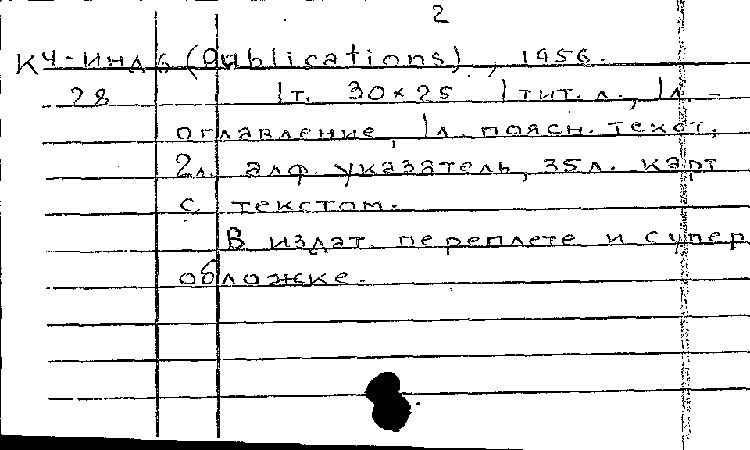 2
КЧ-Инд 6 (Publications), 1956.
28 1т. 30×25 1 тит. л., 1л. -
оглавление, 1л. поясн. текст,
2л. алф. указатель, 35л. карт
с текстом.
В издат. переплете и супер
обложке.